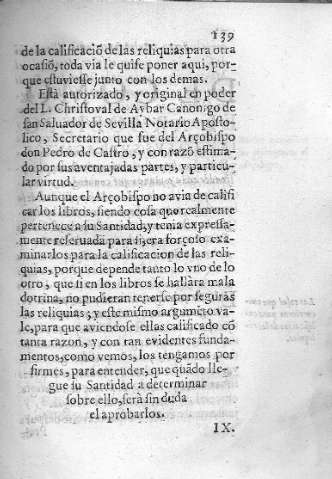 139
de la calificaciõ de las reliquias para otra
ocasiõ, toda via le quise poner aqui, por-
que estuviesse junto con los demas.
Està autorizado, y original en poder
del L. Christoval de Aybar Canonigo de
san Salvador de Sevilla Notario Aposto-
lico, Secretario que fue del Arçobispo
don Pedro de Castro, y con razõ estima-
do por sus aventajadas partes, y particu-
lar virtud.
Aunque el Arçobispo no avia de califi
car los libros, siendo cosa que realmente
pertenece a su Santidad, y tenia expressa-
mente reservada para si, era forçoso exa-
minarlos para la calificacion de las reli-
quias, porque depende tanto lo vno de lo
otro, que si en los libros se hallàra mala
dotrina, no pudieran tenerse por seguras
las reliquias; y este mismo argumẽto va-
le, para que aviendose ellas calificado cõ
tanta razon, y con tan evidentes funda-
mentos, como vemos, los tengamos por
firmes, para entender, que quãdo lle-
gue su Santidad a determinar
sobre ello, serà sin duda
el aprobarlos.
IX.